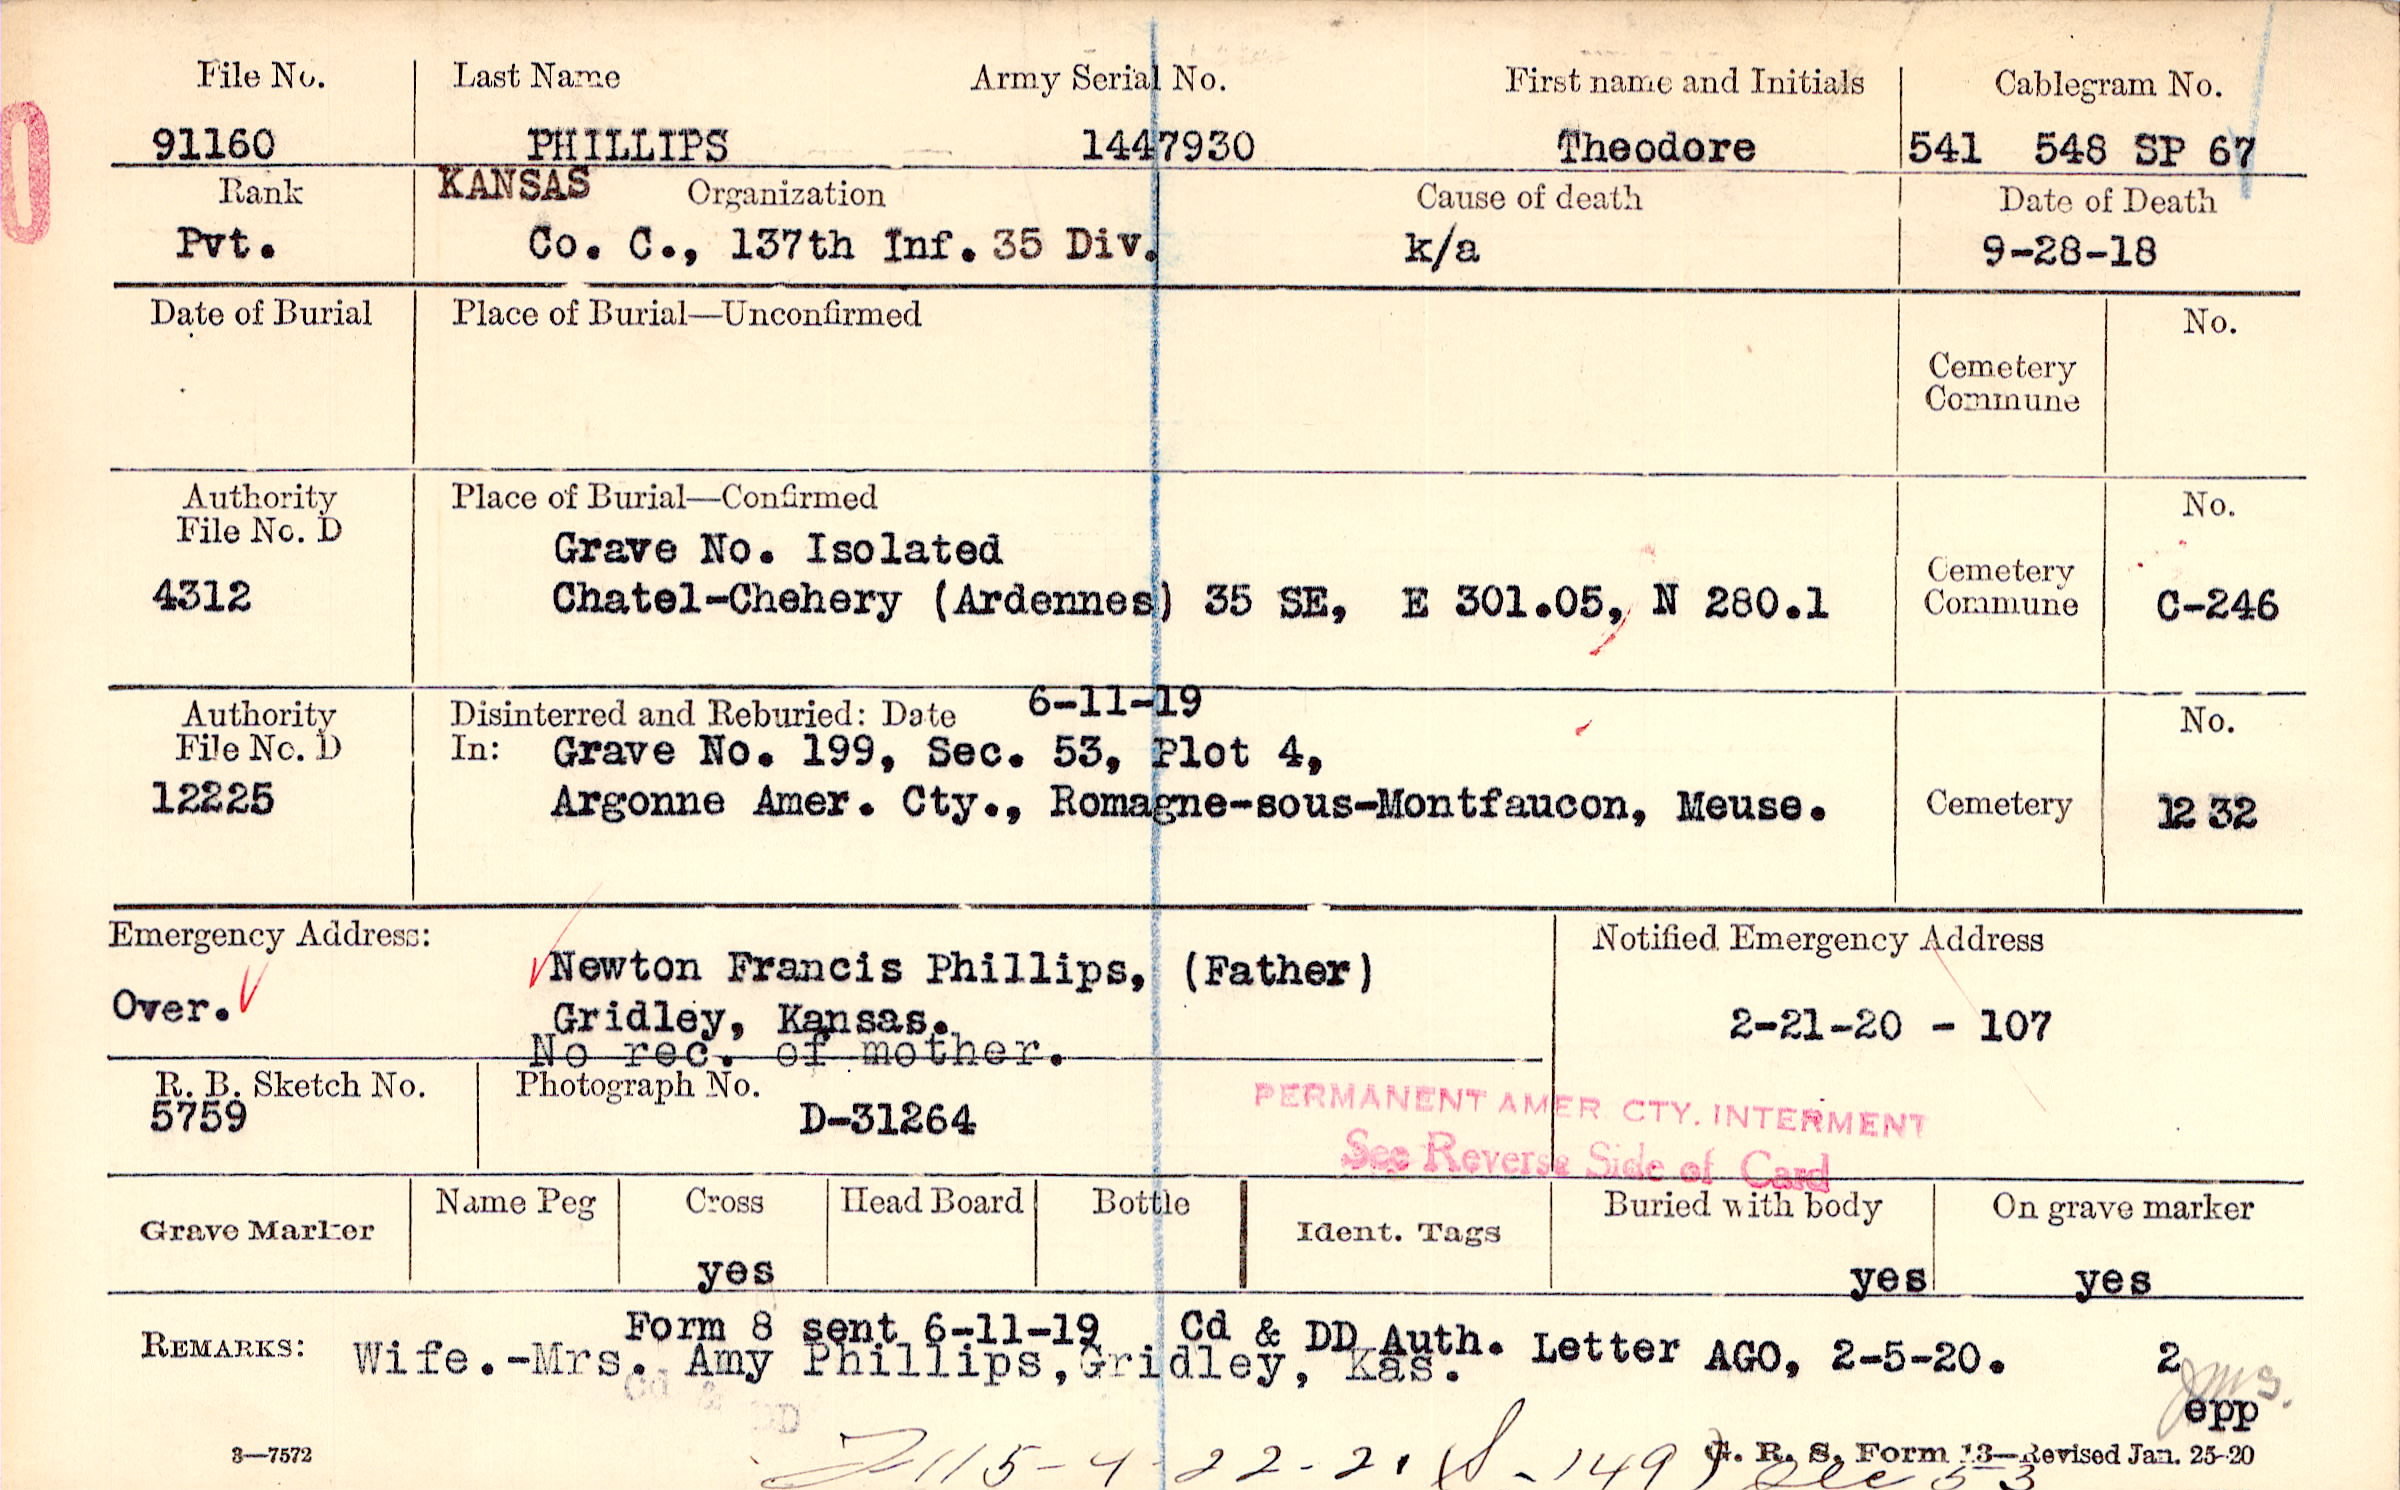 File No. Last Name Army Serial No. First name and Initials Cablegram No.
91160 PHILLIPS 1447930 Theodore 541 548 SP 67
Rank KANSAS Organization Cause of death Date of Death
Pvt. Co. C., 137th Inf. 35 Div. k/a 9-28-18
Date of Burial Place of Burial—Unconfirmed No.
Cemetery
Commune
Authority Place of Burial—Confirmed No.
File No. D
Grave No. Isolated
Cemetery
4312 Chatel-Chehery (Ardennes) 35 SE, E 301.05, N 280.1 Commune C-246
Authority Disinterred and Reburied: Date 6-11-19 No.
File No. D In: Grave No. 199, Sec. 53, Plot 4,
12225 Argonne Amer. Cty., Romagne-sous-Montfaucon, Meuse. Cemetery 1232
Emergency Address: Notified Emergency Address
Newton Francis Phillips, (Father)
Over. Gridley, Kansas. 2-21-20 - 107
No rec. of mother.
R. B. Sketch No. Photograph No.
5759 D-31264
PERMANENT AMER. CTY. INTERMENT
See Reverse Side of Card
Grave Marker Name Peg Cross Head Board Bottle Ident. Tags Buried with body On grave marker
yes yes yes
Form 8 sent 6-11-19 Cd & DD Auth. Letter AGO, 2-5-20. 2
REMARKS: Wife.-Mrs. Amy Phillips, Gridley, Kas.
Cd & DD
JMS.
epp
115-4-22-21 S-149
3—7572 G. R. S. Form 13—Revised Jan. 25-20